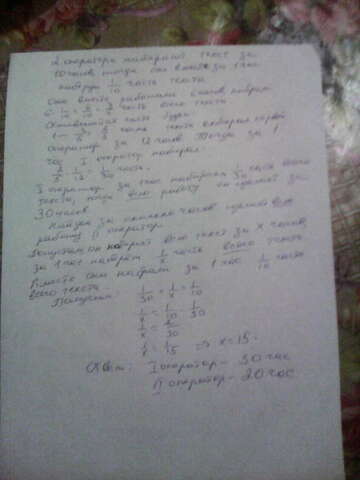 2 оператора набирают текст за
10 часов, тогда они вместе за 1 час
наберут 1/10 часть текста
Они вместе работали 6 часов, набрав
6 · 1/10 = 6/10 = 3/5 часть всего текста
Оставшаяся часть
1 - 3/5 = 2/5 часть текста набирал первый
Оператор за 12 часов Тогда за 1
час I оператор набирал:
2/5 · 1/12 = 1/30 часть.
I оператор за час набирал 1/30 часть всего
текста, тогда всю работу он сделает за
30 часов
за сколько часов сделает всю
работу II оператор.
Допустим он наберет весь текст за x часов,
за 1 час набрал 1/x часть всего текста
Вместе они набрали за 1 час 1/10 часть
всего текста.
Получим: 1/30 + 1/x = 1/10
1/x = 1/10 - 1/30
1/x = 2/30
1/x = 1/15 => x = 15.
Ответ: I оператор - 30 час
II оператор - 20 час